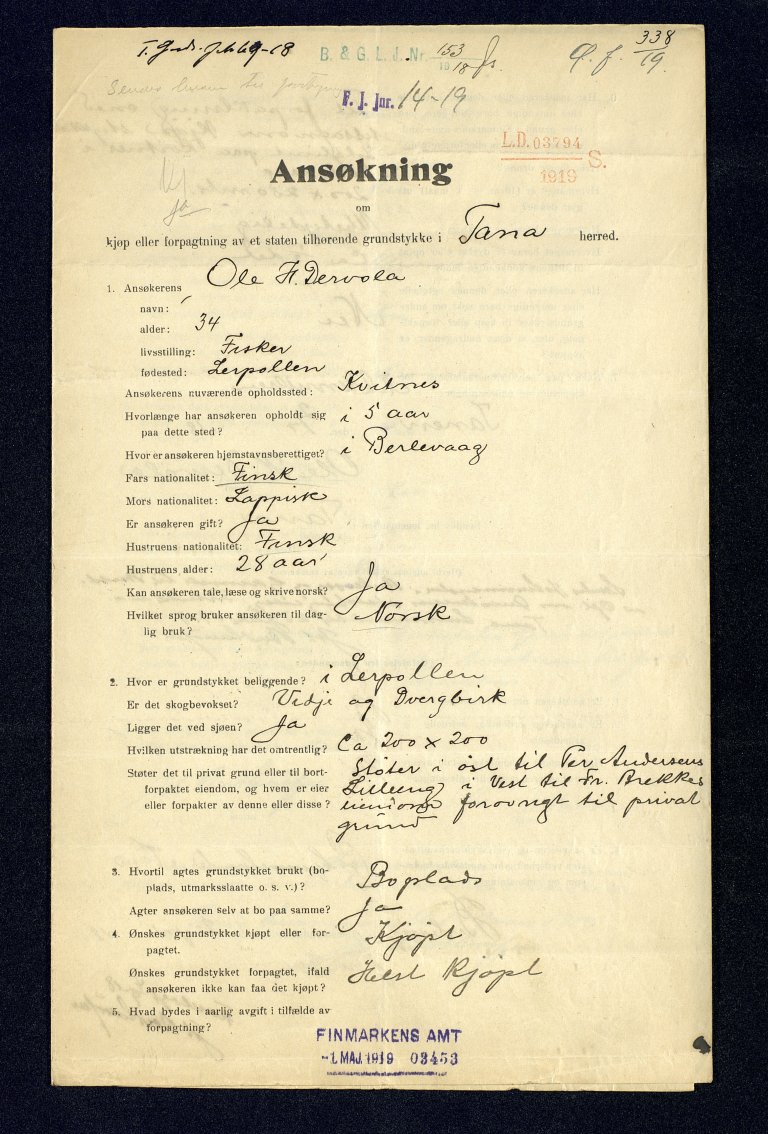 B. & G. L. J. Nr. 153
1918
338
19.
F. J. Jnr. 14-19
L.D. 03794
1919 S.
Ansøkning
om
kjøp eller forpagtning av et staten tilhørende grundstykke i Tana herred.
1. Ansøkerens
navn: Ole H. Dervola
alder: 34
livsstilling: Fisker
fødested: Lerpollen
Ansøkerens nuværende opholdssted: Kvitnes
Hvorlænge har ansøkeren opholdt sig
paa dette sted? i 5 aar
Hvor er ansøkeren hjemstavnsberettiget? i Berlevaag
Fars nationalitet: Finsk
Mors nationalitet: Lappisk
Er ansøkeren gift? Ja
Hustruens nationalitet: Finsk
Hustruens alder: 28 aar
Kan ansøkeren tale, læse og skrive norsk? Ja
Hvilket sprog bruker ansøkeren til dag-
lig bruk? Norsk
2. Hvor er grundstykket beliggende? i Lerpollen
Er det skogbevokset? Vedje og Dvergbirk
Ligger det ved sjøen? Ja
Hvilken utstrækning har det omtrentlig? Ca 200 x 200
Støter det til privat grund eller til bort-
forpaktet eiendom, og hvem er eier
eller forpakter av denne eller disse?
Støter i øst til Per Andersens
Lilleeng i Vest til Fr. Brekkes
eiendom forøvrigt til privat
grund
3. Hvortil agtes grundstykket brukt (bo-
plads, utmarksslaatte o. s. v.)? Boplads
Agter ansøkeren selv at bo paa samme? Ja
4. Ønskes grundstykket kjøpt eller for-
pagtet. Kjøpt
Ønskes grundstykket forpagtet, ifald
ansøkeren ikke kan faa det kjøpt? Helst kjøpt
5. Hvad bydes i aarlig avgift i tilfælde av
forpagtning?
FINMARKENS AMT
-1. MAJ. 1919 03453